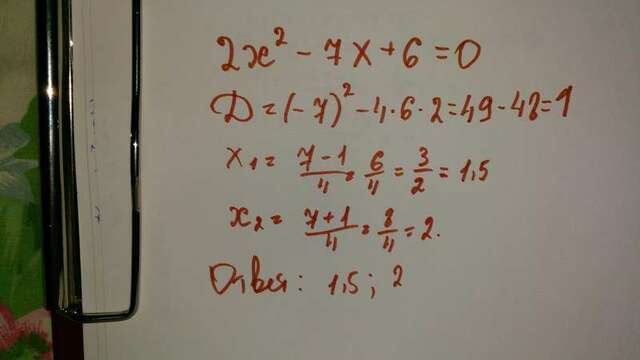 2x² - 7x + 6 = 0
D = (-7)² - 4·6·2 = 49 - 48 = 1
x₁ = (7-1)/4 = 6/4 = 3/2 = 1,5
x₂ = (7+1)/4 = 8/4 = 2.
Ответ: 1,5; 2